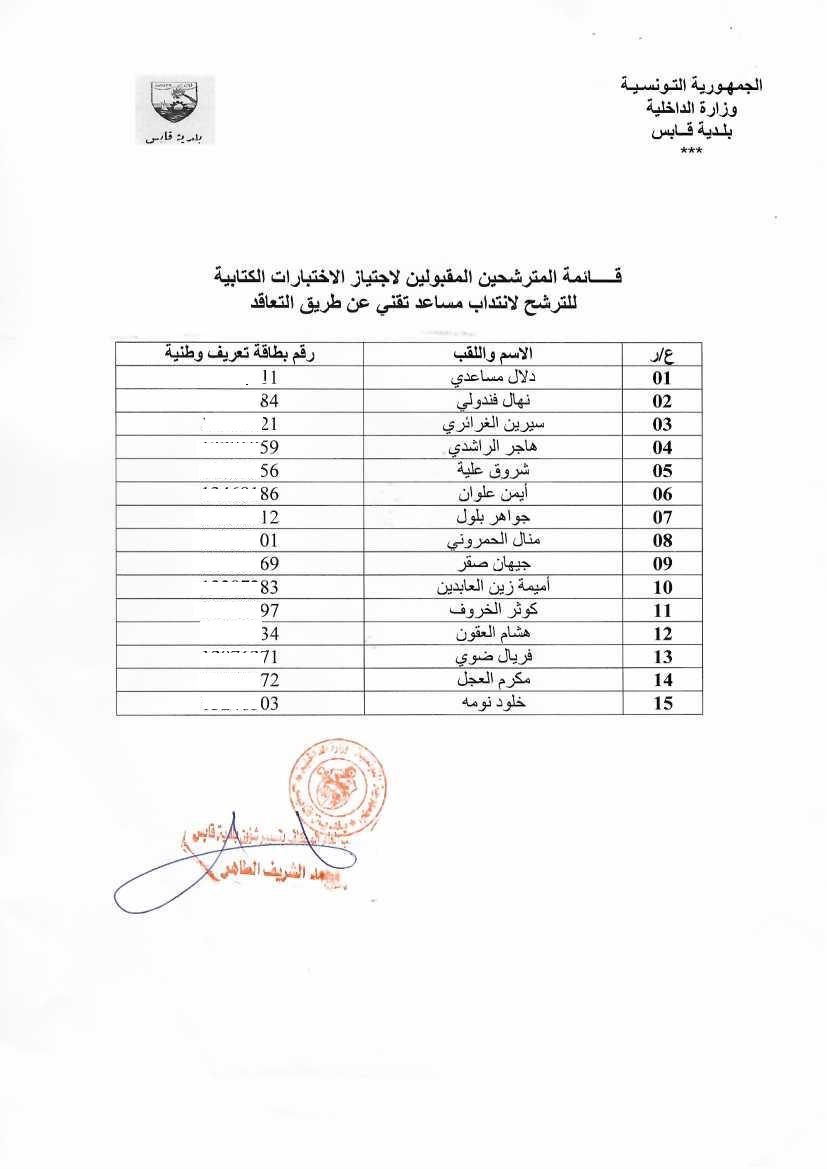 الجمهورية التونسية
وزارة الداخلية
بلدية قابس
***
بلدية قابس
قائمة المترشحين المقبولين لاجتياز الاختبارات الكتابية
للترشح لانتداب مساعد تقني عن طريق التعاقد
ع/ر الاسم واللقب رقم بطاقة تعريف وطنية
01 دلال مساعدي 11
02 نهال فندولي 84
03 سيرين الغرائري 21
04 هاجر الراشدي 59
05 شروق علية 56
06 أيمن علوان 86
07 جواهر بلول 12
08 منال الحمروني 01
09 جيهان صقر 69
10 أميمة زين العابدين 83
11 كوثر الخروف 97
12 هشام العقون 34
13 فريال ضوي 71
14 مكرم العجل 72
15 خلود نومه 03
بلدية قابس
محمد الشريف الطاهر